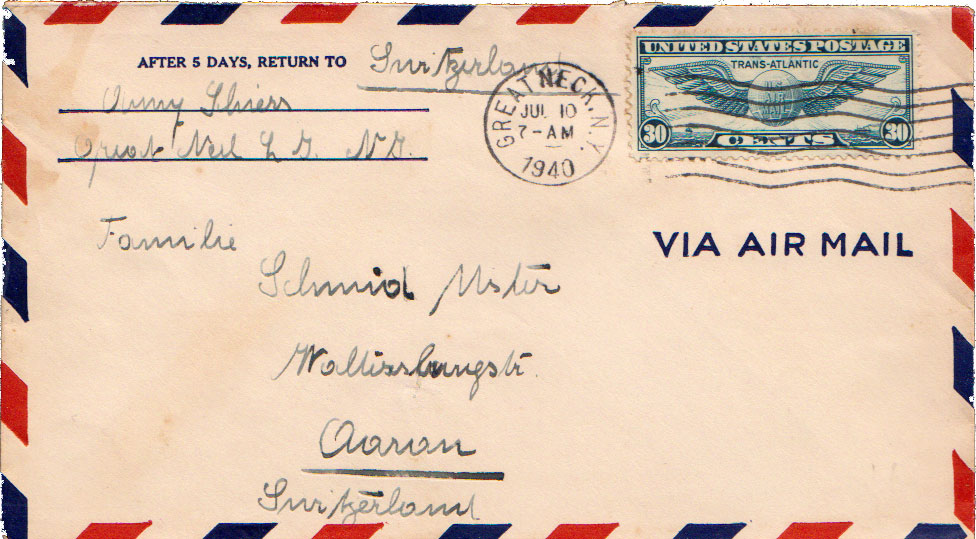 AFTER 5 DAYS, RETURN TO
Switzerland
Great Neck L. I. N.Y.
GREAT NECK, N.Y.
JUL 10
7-AM
1940
UNITED STATES POSTAGE
TRANS-ATLANTIC
U.S.
AIR
MAIL
30 CENTS 30
VIA AIR MAIL
Familie
Schmid
Aarau
Switzerland